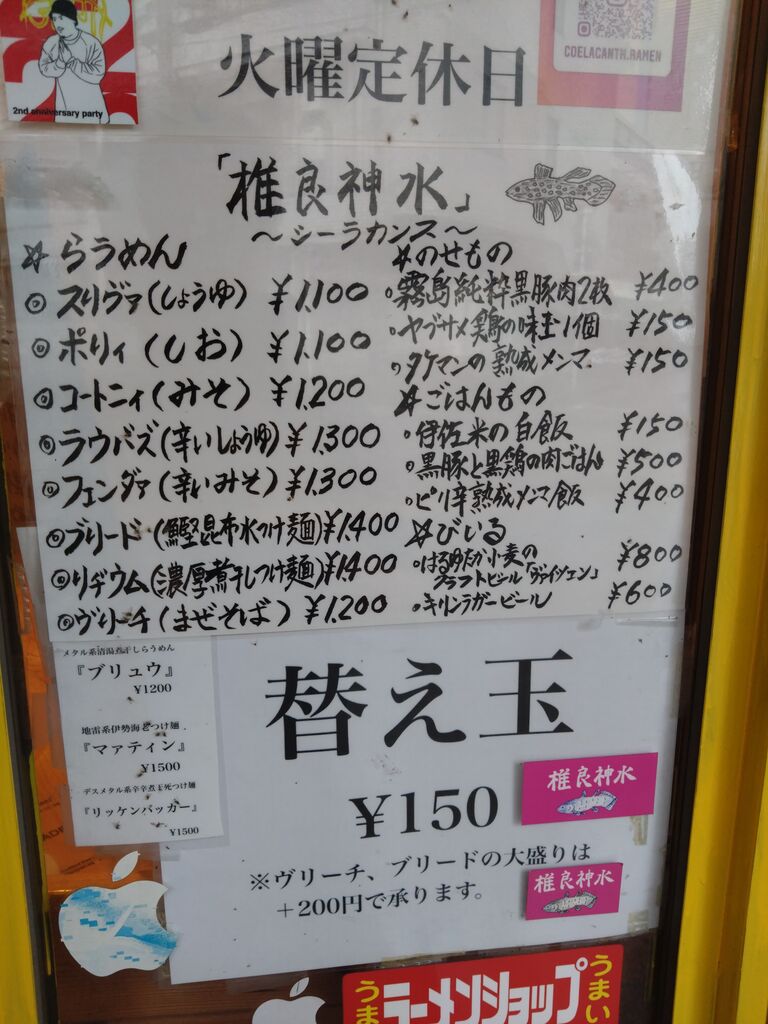 2nd anniversary party
火曜定休日
COELACANTH.RAMEN
「椎良神水」
～シーラカンス～
☆らうめん
◎スリヴァ(しょうゆ) ¥1,100
◎ポリィ(しお) ¥1,100
◎コートニィ(みそ) ¥1,200
◎ラウバズ(辛いしょうゆ) ¥1,300
◎フェンダァ(辛いみそ) ¥1,300
◎ブリード(鰹昆布水つけ麺) ¥1,400
◎リヂウム(濃厚煮干しつけ麺) ¥1,400
◎ヴリーチ(まぜそば) ¥1,200
☆のせもの
・霧島純粋黒豚肉2枚 ¥400
・ヤブサメ鶏の味玉1個 ¥150
・タケマンの熟成メンマ ¥150
☆ごはんもの
・伊佐米の白飯 ¥150
・黒豚と黒鶏の肉ごはん ¥500
・ピリ辛熟成メンマ飯 ¥400
☆びいる
・はるゆたか小麦の
クラフトビール「ヴァイツェン」 ¥800
・キリンラガービール ¥600
メタル系清湯煮干しらうめん
『ブリュウ』
¥1200
地雷系伊勢海老つけ麺
『マァティン』
¥1500
デスメタル系辛辛煮玉死つけ麺
『リッケンバッカー』
¥1500
替え玉
¥150
※ヴリーチ、ブリードの大盛りは
+200円で承ります。
椎良神水
椎良神水
うまい
ラーメンショップ
うまい